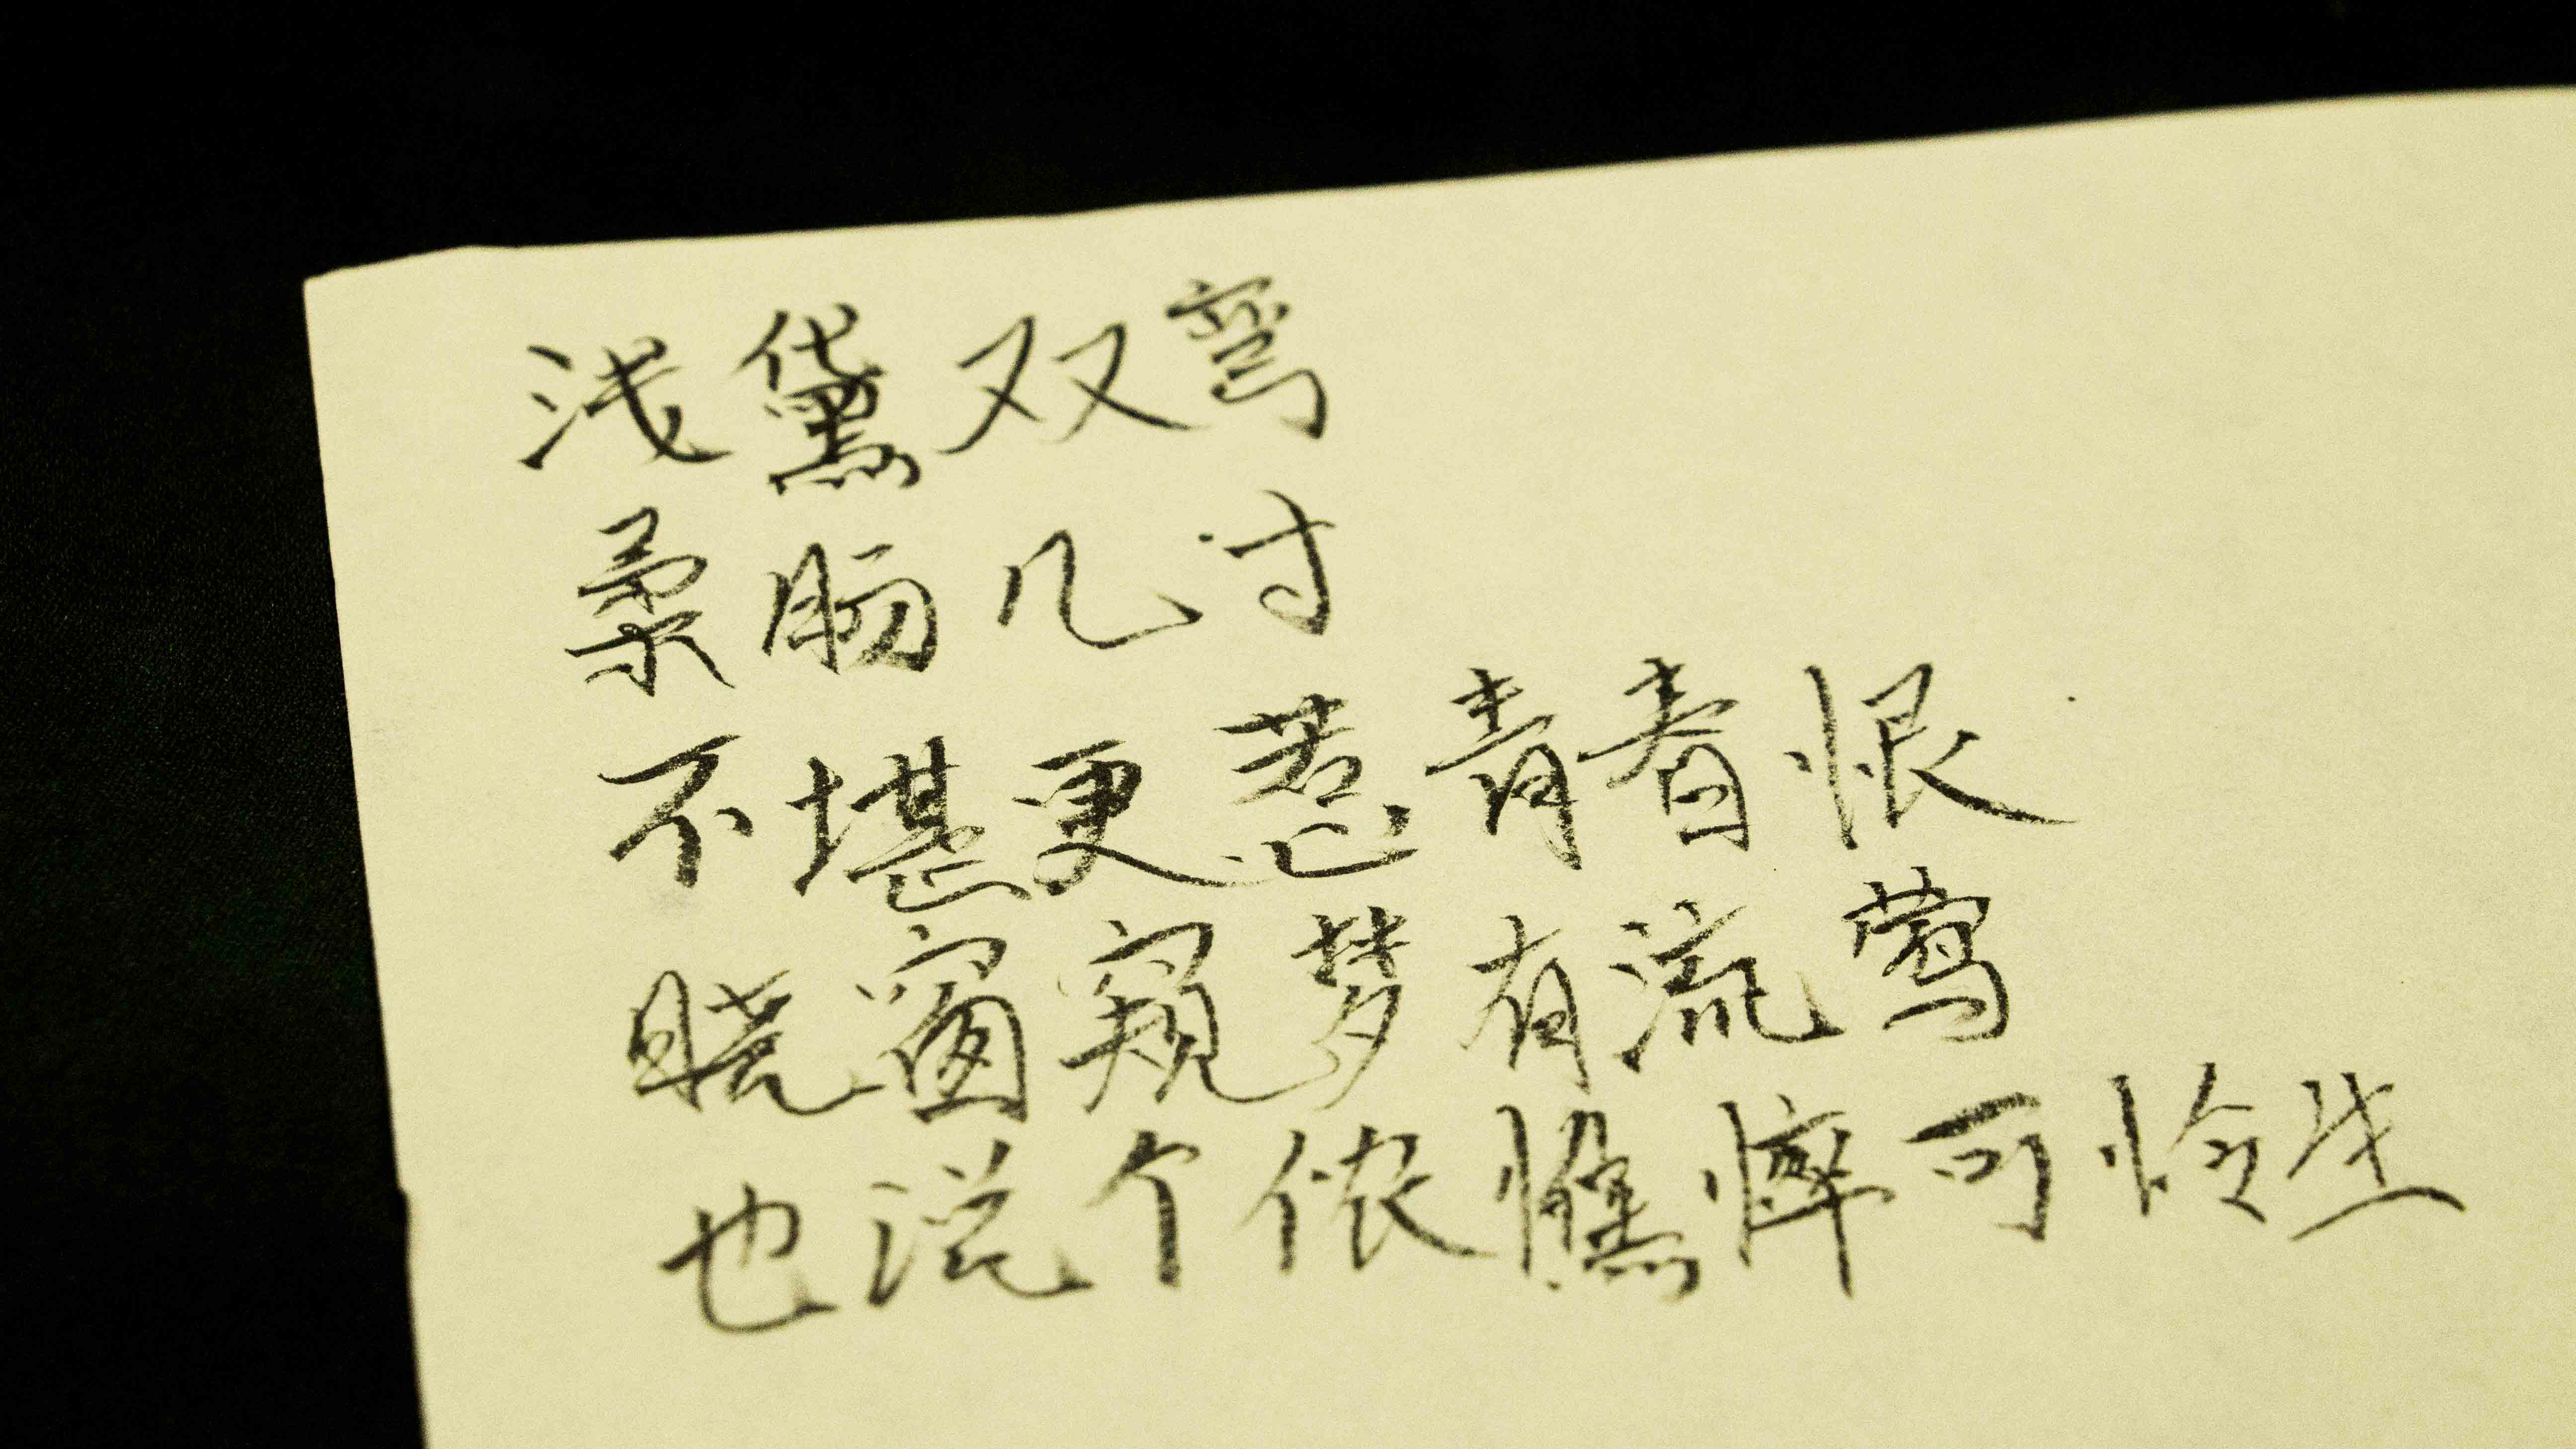 浅黛双弯
柔肠几寸
不堪更惹青春恨
晓窗窥梦有流莺
也说个侬憔悴可怜生